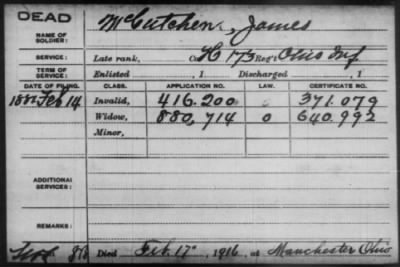 DEAD
NAME OF SOLDIER: McCutchen, James
SERVICE: Late rank, Co. H 173 Reg't Ohio Inf
TERM OF SERVICE: Enlisted , 1 Discharged , 1
DATE OF FILING. CLASS. APPLICATION NO. LAW. CERTIFICATE NO.
Feb 14 Invalid, 416.200 0 371.079
Widow, 880,714 0 640.992
Minor,
ADDITIONAL SERVICES:
REMARKS:
Died Feb. 17", 1916, at Manchester Ohio